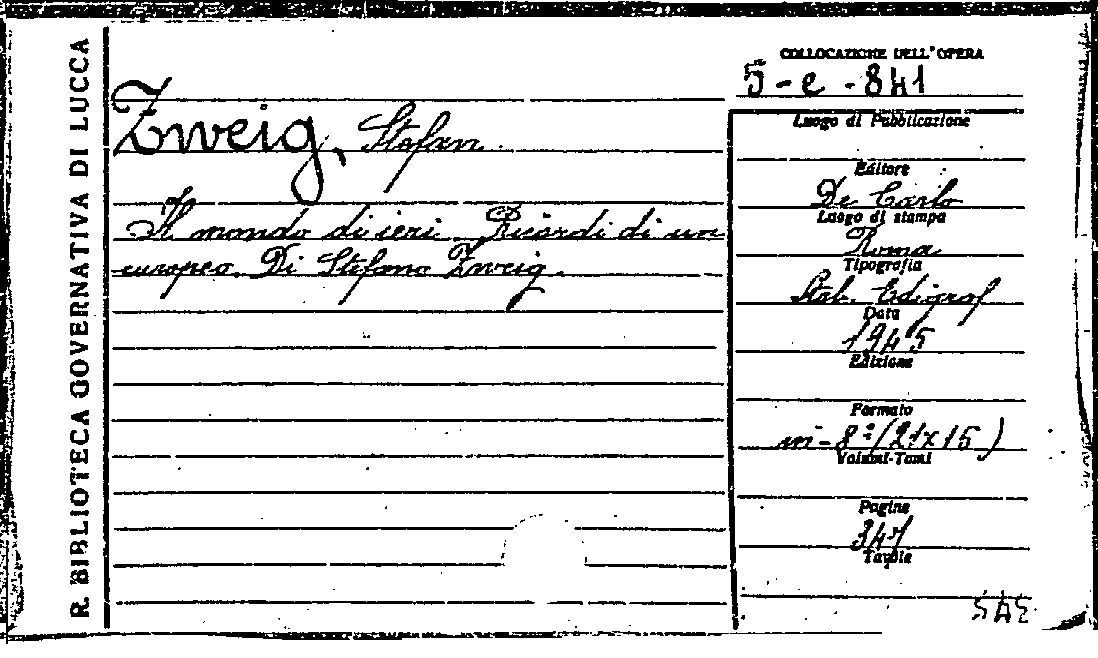 R. BIBLIOTECA GOVERNATIVA DI LUCCA
Zweig, Stefan.
Il mondo di ieri. Ricordi di un
europeo. Di Stefano Zweig.
COLLOCAZIONE DELL'OPERA
5-e-841
Luogo di Pubblicazione
Editore
De Carlo
Luogo di stampa
Roma
Tipografia
Stab. Edigraf
Data
1945
Edizione
Formato
in-8º (21x15)
Volumi-Tomi
Pagine
347
Tavole